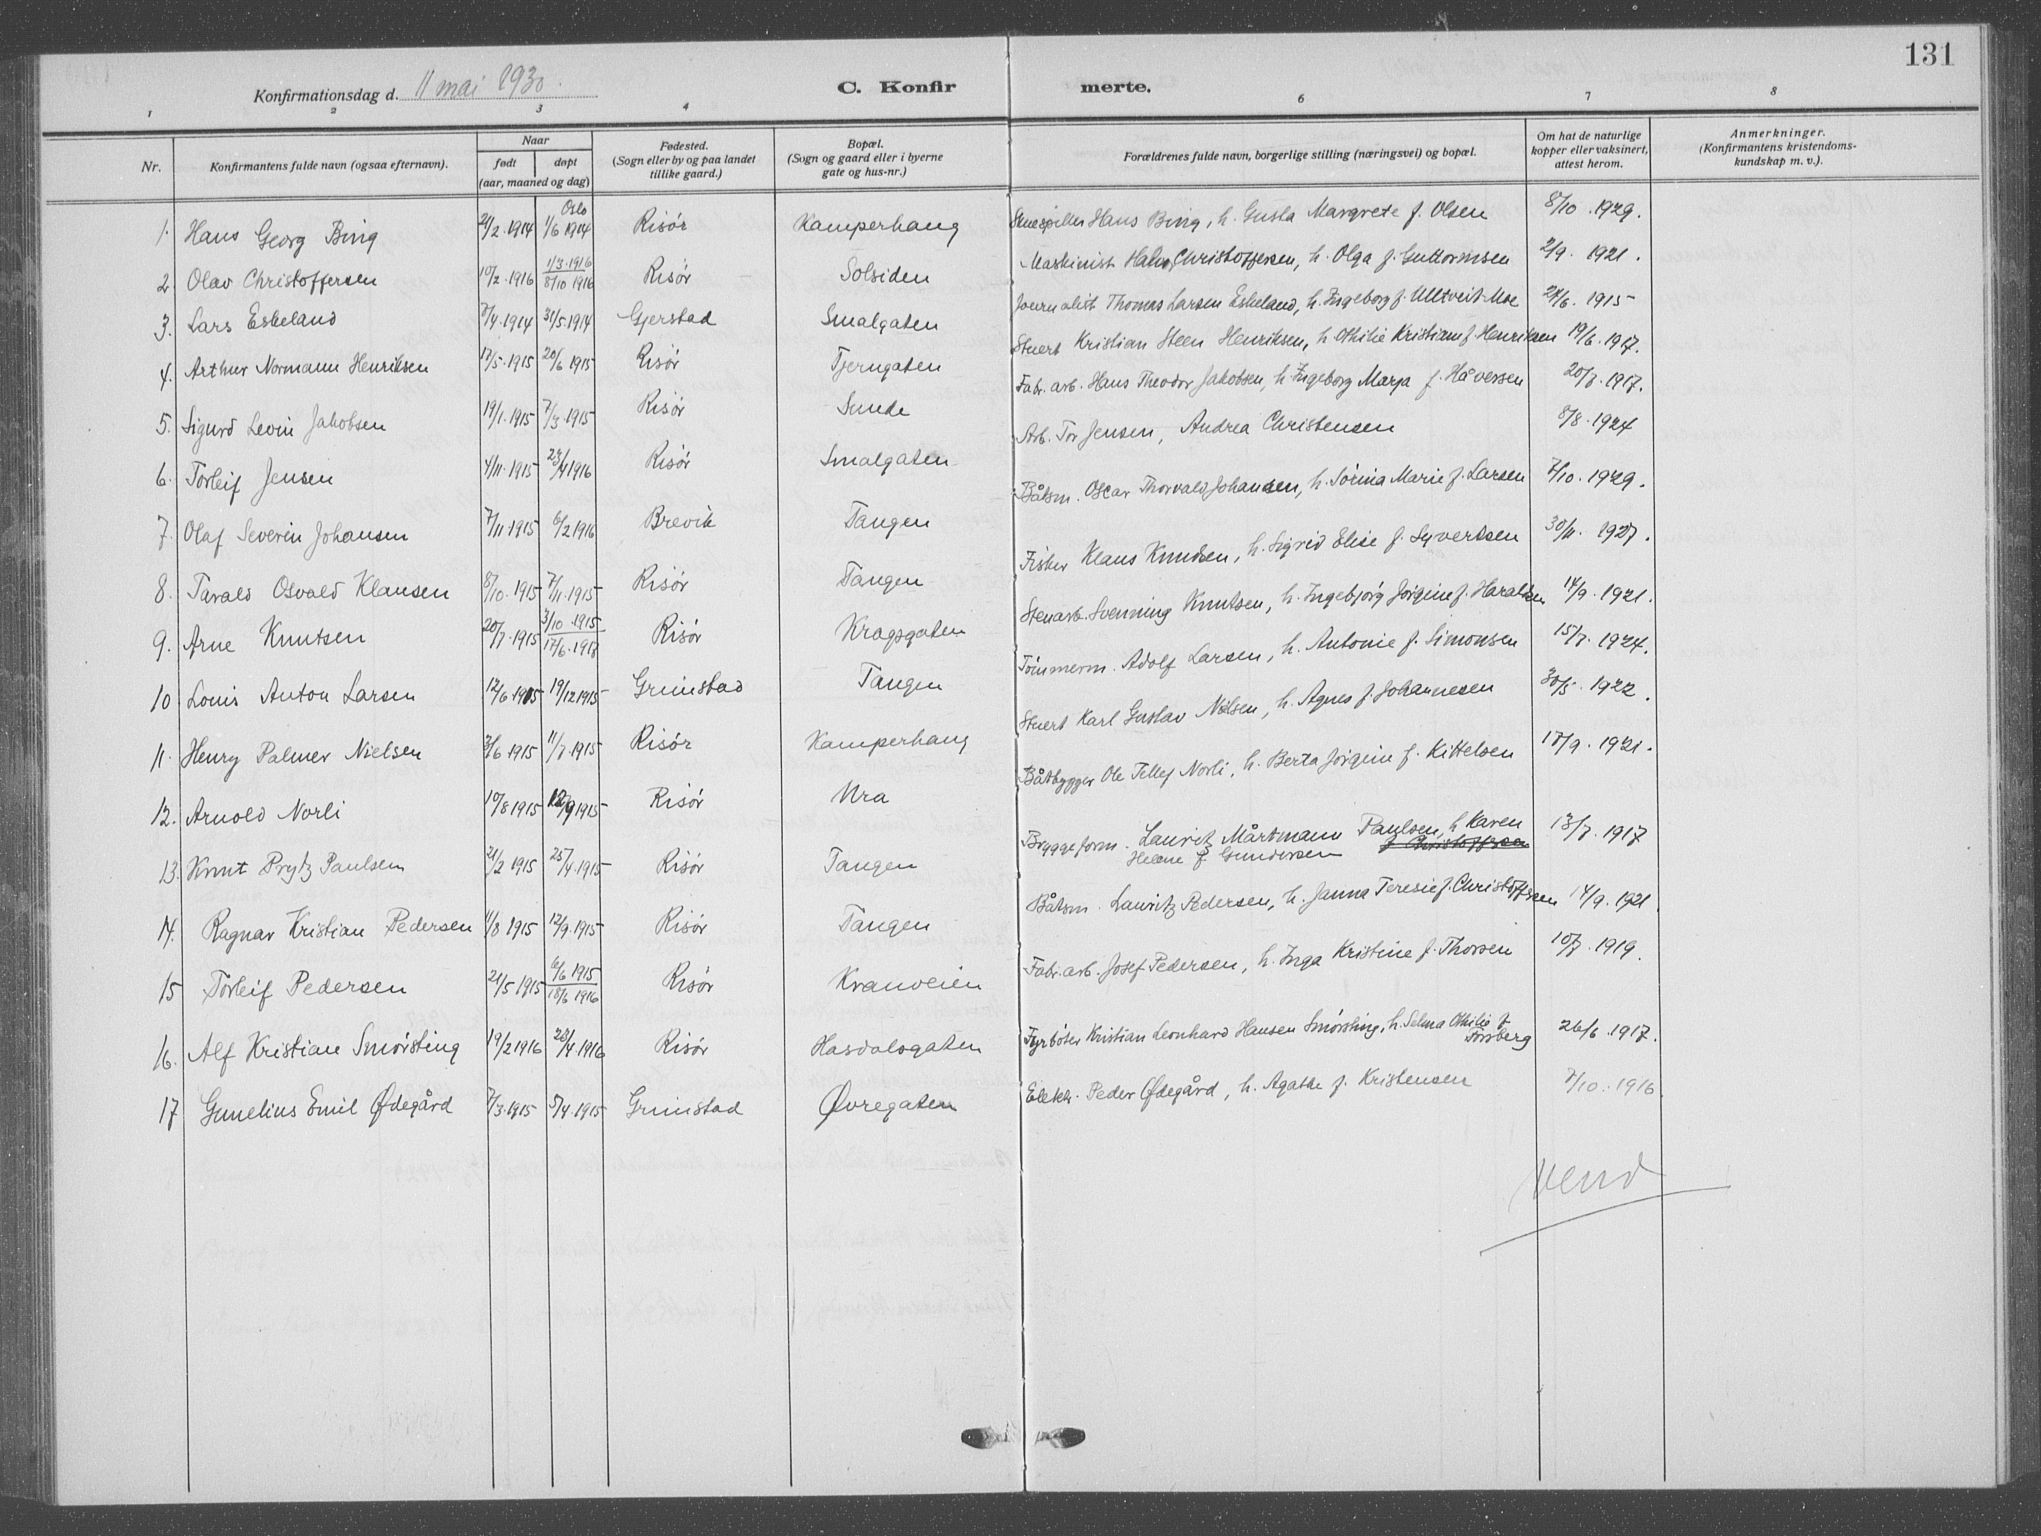 131
Konfirmationsdag d. 11 mai 1930. C. Konfirmerte.
1 2 3 4 6 7 8
Nr. Konfirmantens fulde navn (ogsaa efternavn). Naar født døpt (aar, maaned og dag) Fødested. (Sogn eller by og paa landet tillike gaard.) Bopæl. (Sogn og gaard eller i byerne gate og hus-nr.) Forældrenes fulde navn, borgerlige stilling (næringsvei) og bopæl. Om hat de naturlige kopper eller vaksinert, attest herom. Anmerkninger. (Konfirmantens kristendomskundskap m. v.).
1. Hans Georg Bing 21/2 1914 Oslo 1/6 1914 Risør Kamperhaug Skuespiller Hans Bing, h. Gusta Margrete f. Olsen 8/10 1929.
2 Olav Christoffersen 10/2 1916 1/3 1916 8/10 1916 Risør Solsiden Maskinist Hans Christoffersen, h. Olga f. Guttormsen 2/9 1921.
3. Lars Eskeland 1914 31/5 1914 Gjerstad Smalgaten Journalist Thomas Larsen Eskeland, h. Ingeborg f. Ulltveit-Moe 24/6. 1915
4. Arthur Normann Henriksen 17/5 1915 20/6 1915 Risør Tjerngaten Stuert Kristian Steen Henriksen, h. Othilie Kristiane f. Henriksen 19/6. 1917.
5. Sigurd Levin Jakobsen 19/1. 1915 7/3 1915 Risør Sunde Fabr. arb. Hans Theodor Jakobsen, h. Ingeborg Marja f. Håversen 20/7. 1917.
6. Torleif Jensen 4/11. 1915 24/4 1916 Risør Smalgaten Arb. Tor Jensen, Andrea Christensen 8/8. 1924
7. Olaf Severin Johansen 7/11 1915 6/2 1916 Brevik Tangen Båtsm. Oscar Thorvald Johansen, h. Sørina Marie f. Larsen 7/10. 1929.
8. Tarald Osvald Klausen 8/10. 1915 7/11. 1915 Risør Tangen Fisker Klaus Knudsen, h. Sigrid Elise f. Syvertsen 30/11. 1927.
9. Arne Knutsen 20/7. 1915 3/10. 1915 17/6. 1917 Risør Kragsgaten Stenarb. Svenning Knutsen, h. Ingebjørg Jørgine f. Haraldsen 14/9. 1921.
10 Louis Anton Larsen 12/6 1915 19/12 1915 Grimstad Tangen Tömmerm. Adolf Larsen, h. Antonie f. Simonsen 15/7. 1924.
11. Henry Palmer Nielsen 1915 11/7. 1915 Risør Kamperhaug Stuert Karl Gustav Nilsen, h. Agnes f. Johannesen 30/5. 1922.
12. Arnold Norli 10/8 1915 12/9 1915 Risør Ura Båtbygger Ole Tellef Norli, h. Berta Jörgine f. Kittelsen 17/9. 1921.
13. Knut Prytz Paulsen 21/2 1915 25/4. 1915 Risør Tangen Bryggeform. Lauritz Mårtmann Paulsen, h Karen f Christoffersen
Helene f. Gundersen 13/7. 1917
14. Ragnar Kristian Pedersen 11/8 1915 12/9. 1915 Risør Tangen Båtsm. Lauritz Pedersen, h. Janna Teresie f. Christoffersen 14/9. 1921.
15 Torleif Pedersen 21/5 1915 6/6 1915 18/6 1916 Risør Kranveien Fabr. arb. Josef Pedersen, h. Inga Kristine f. Thorsen 10/7. 1919.
16. Alf Kristian Smørsting 19/2 1916 1916 Risør Hasdalsgaten Fyrbøter Kristian Leonhard Hansen Smørsting, h. Selma Othilie f Forsberg 26/6. 1917.
17 Gunelius Emil Ødegård 7/3. 1915 5/4. 1915 Grimstad Øvregaten Elektr. Peder Ødegård, h. Agathe f. Kristensen 7/10. 1916.
Vend